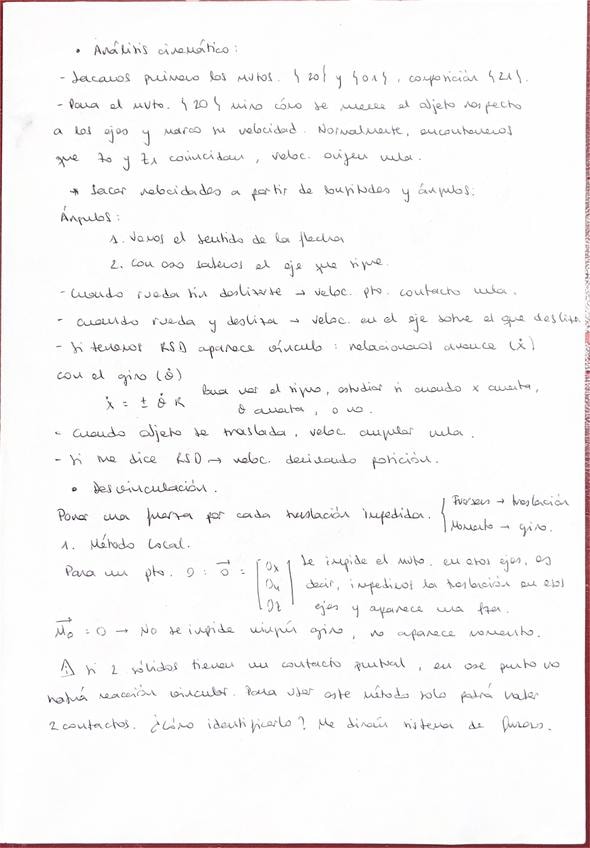 • Análisis cinemático:
- Sacamos primero los mvtos. {20} y {01}, composición {21}.
- Para el mvto. {20} miro cómo se mueve el objeto respecto
a los ejes y marco su velocidad. Normalmente, encontraremos
que z0 y z1 coincidan, veloc. origen nula.
* Sacar velocidades a partir de longitudes y ángulos:
Ángulos:
1. Vemos el sentido de la flecha
2. Con eso sabemos el eje que sigue.
- Cuando rueda sin deslizarse → veloc. pto. contacto nula.
- Cuando rueda y desliza → veloc. en el eje sobre el que desliza
- Si tenemos RSD aparece vínculo: relacionamos avance (ẋ)
con el giro (θ̇)
ẋ = ± θ̇ R Para ver el signo, estudiar si cuando x aumenta,
θ aumenta, o no.
- Cuando objeto se traslada, veloc. angular nula.
- Si me dice RSD → veloc. derivando posición.
• Desvinculación.
Poner una fuerza por cada traslación impedida. { Fuerzas → traslación
Momento → giro.
1. Método Local.
Para un pto. O: O⃗ = [Ox Oy Oz] Se impide el mvto. en esos ejes, es
decir, impedimos la traslación en esos
ejes y aparece una fza.
M⃗o = 0 → No se impide ningún giro, no aparece momento.
⚠ Si 2 sólidos tienen un contacto puntual, en ese punto no
habrá reacción vincular. Para usar este método solo podrá haber
2 contactos. ¿Cómo identificarlo? Me dirán sistema de fuerzas.